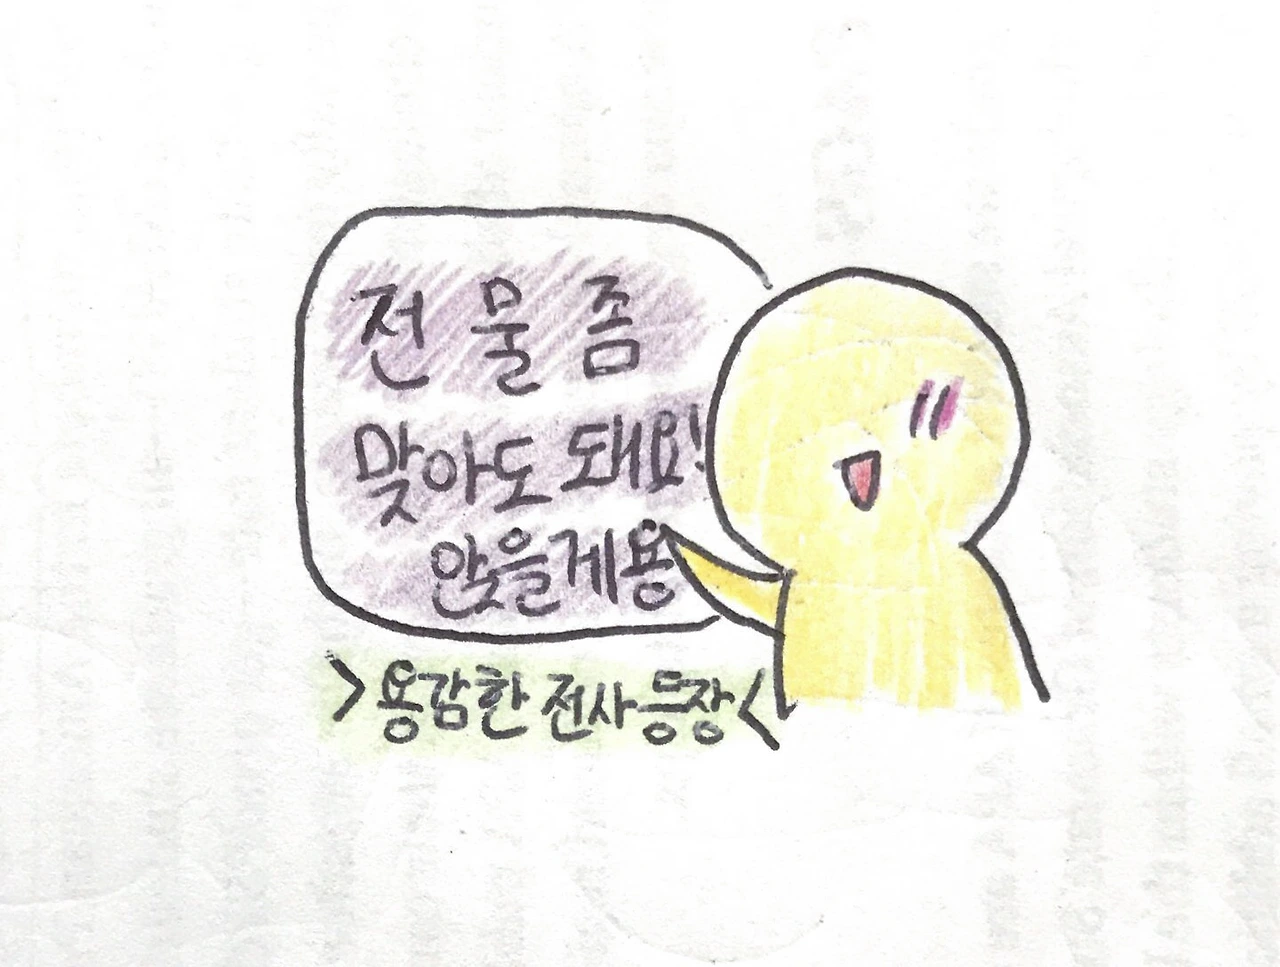 전 물 좀
맞아도 돼요!
앉을게용
>용감한 전사 등장<